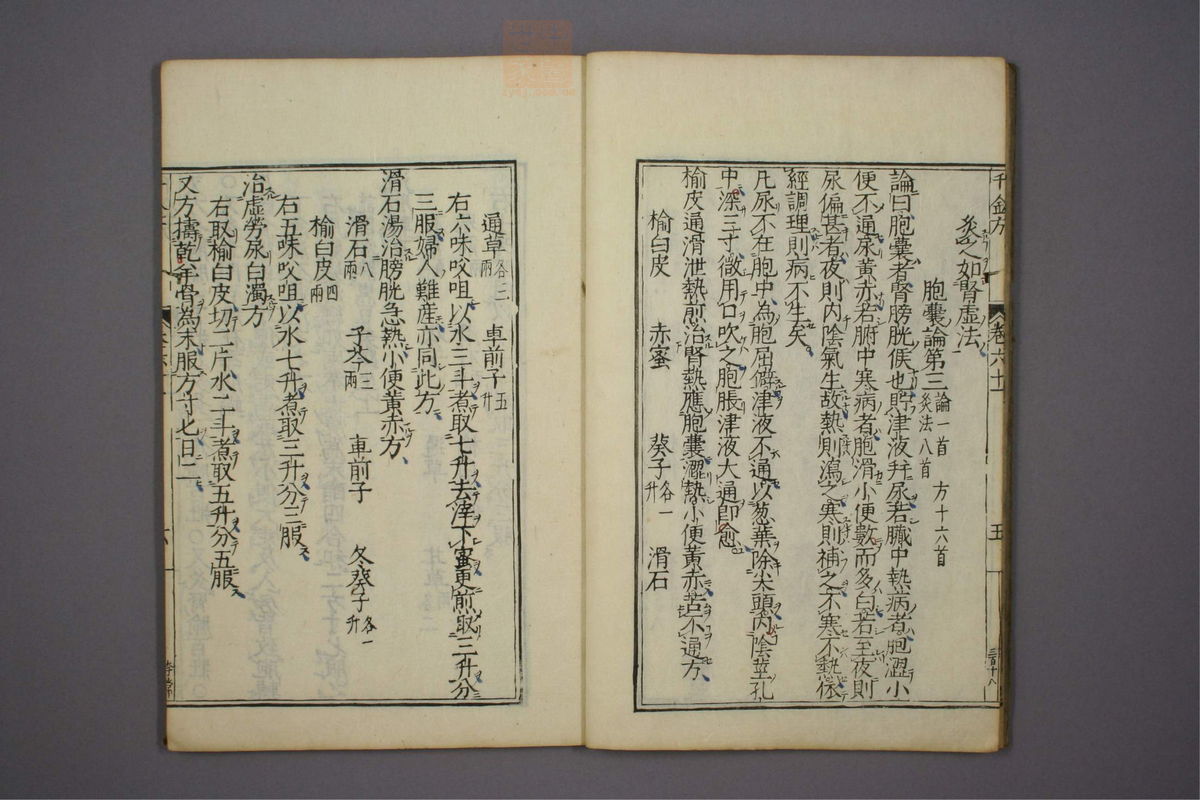 千金方
卷六十一
五
三百十八
灸之如腎虛法
胞囊論第三 論一首 方十六首 灸法八首
論曰胞囊者腎膀胱候也貯津液并尿若臟中熱病者胞澀小
便不通尿黃赤若腑中寒病者胞滑小便數而多白若至夜則
尿偏甚者夜則內陰氣生故熱則瀉之寒則補之不寒不熱依
經調理則病不生矣
凡尿不在胞中為胞屈僻津液不通以葱葉除尖頭內陰莖孔
中深三寸微用口吹之胞脹津液大通即愈
榆皮通滑泄熱煎治腎熱應胞囊澀熱小便黃赤苦不通方
榆白皮 赤蜜 葵子各一升 滑石
通草各三兩 車前子五升
右六味㕮咀以水三斗煮取七升去滓下蜜更煎取三升分
三服婦人難產亦同此方
滑石湯治膀胱急熱小便黃赤方
滑石八兩 子芩三兩 車前子 冬葵子各一升
榆白皮四兩
右五味㕮咀以水七升煮取三升分三服
治虛勞尿白濁方
右取榆白皮切二斤水二斗煮取五升分五服
又方擣乾羊骨為末服方寸匕日二